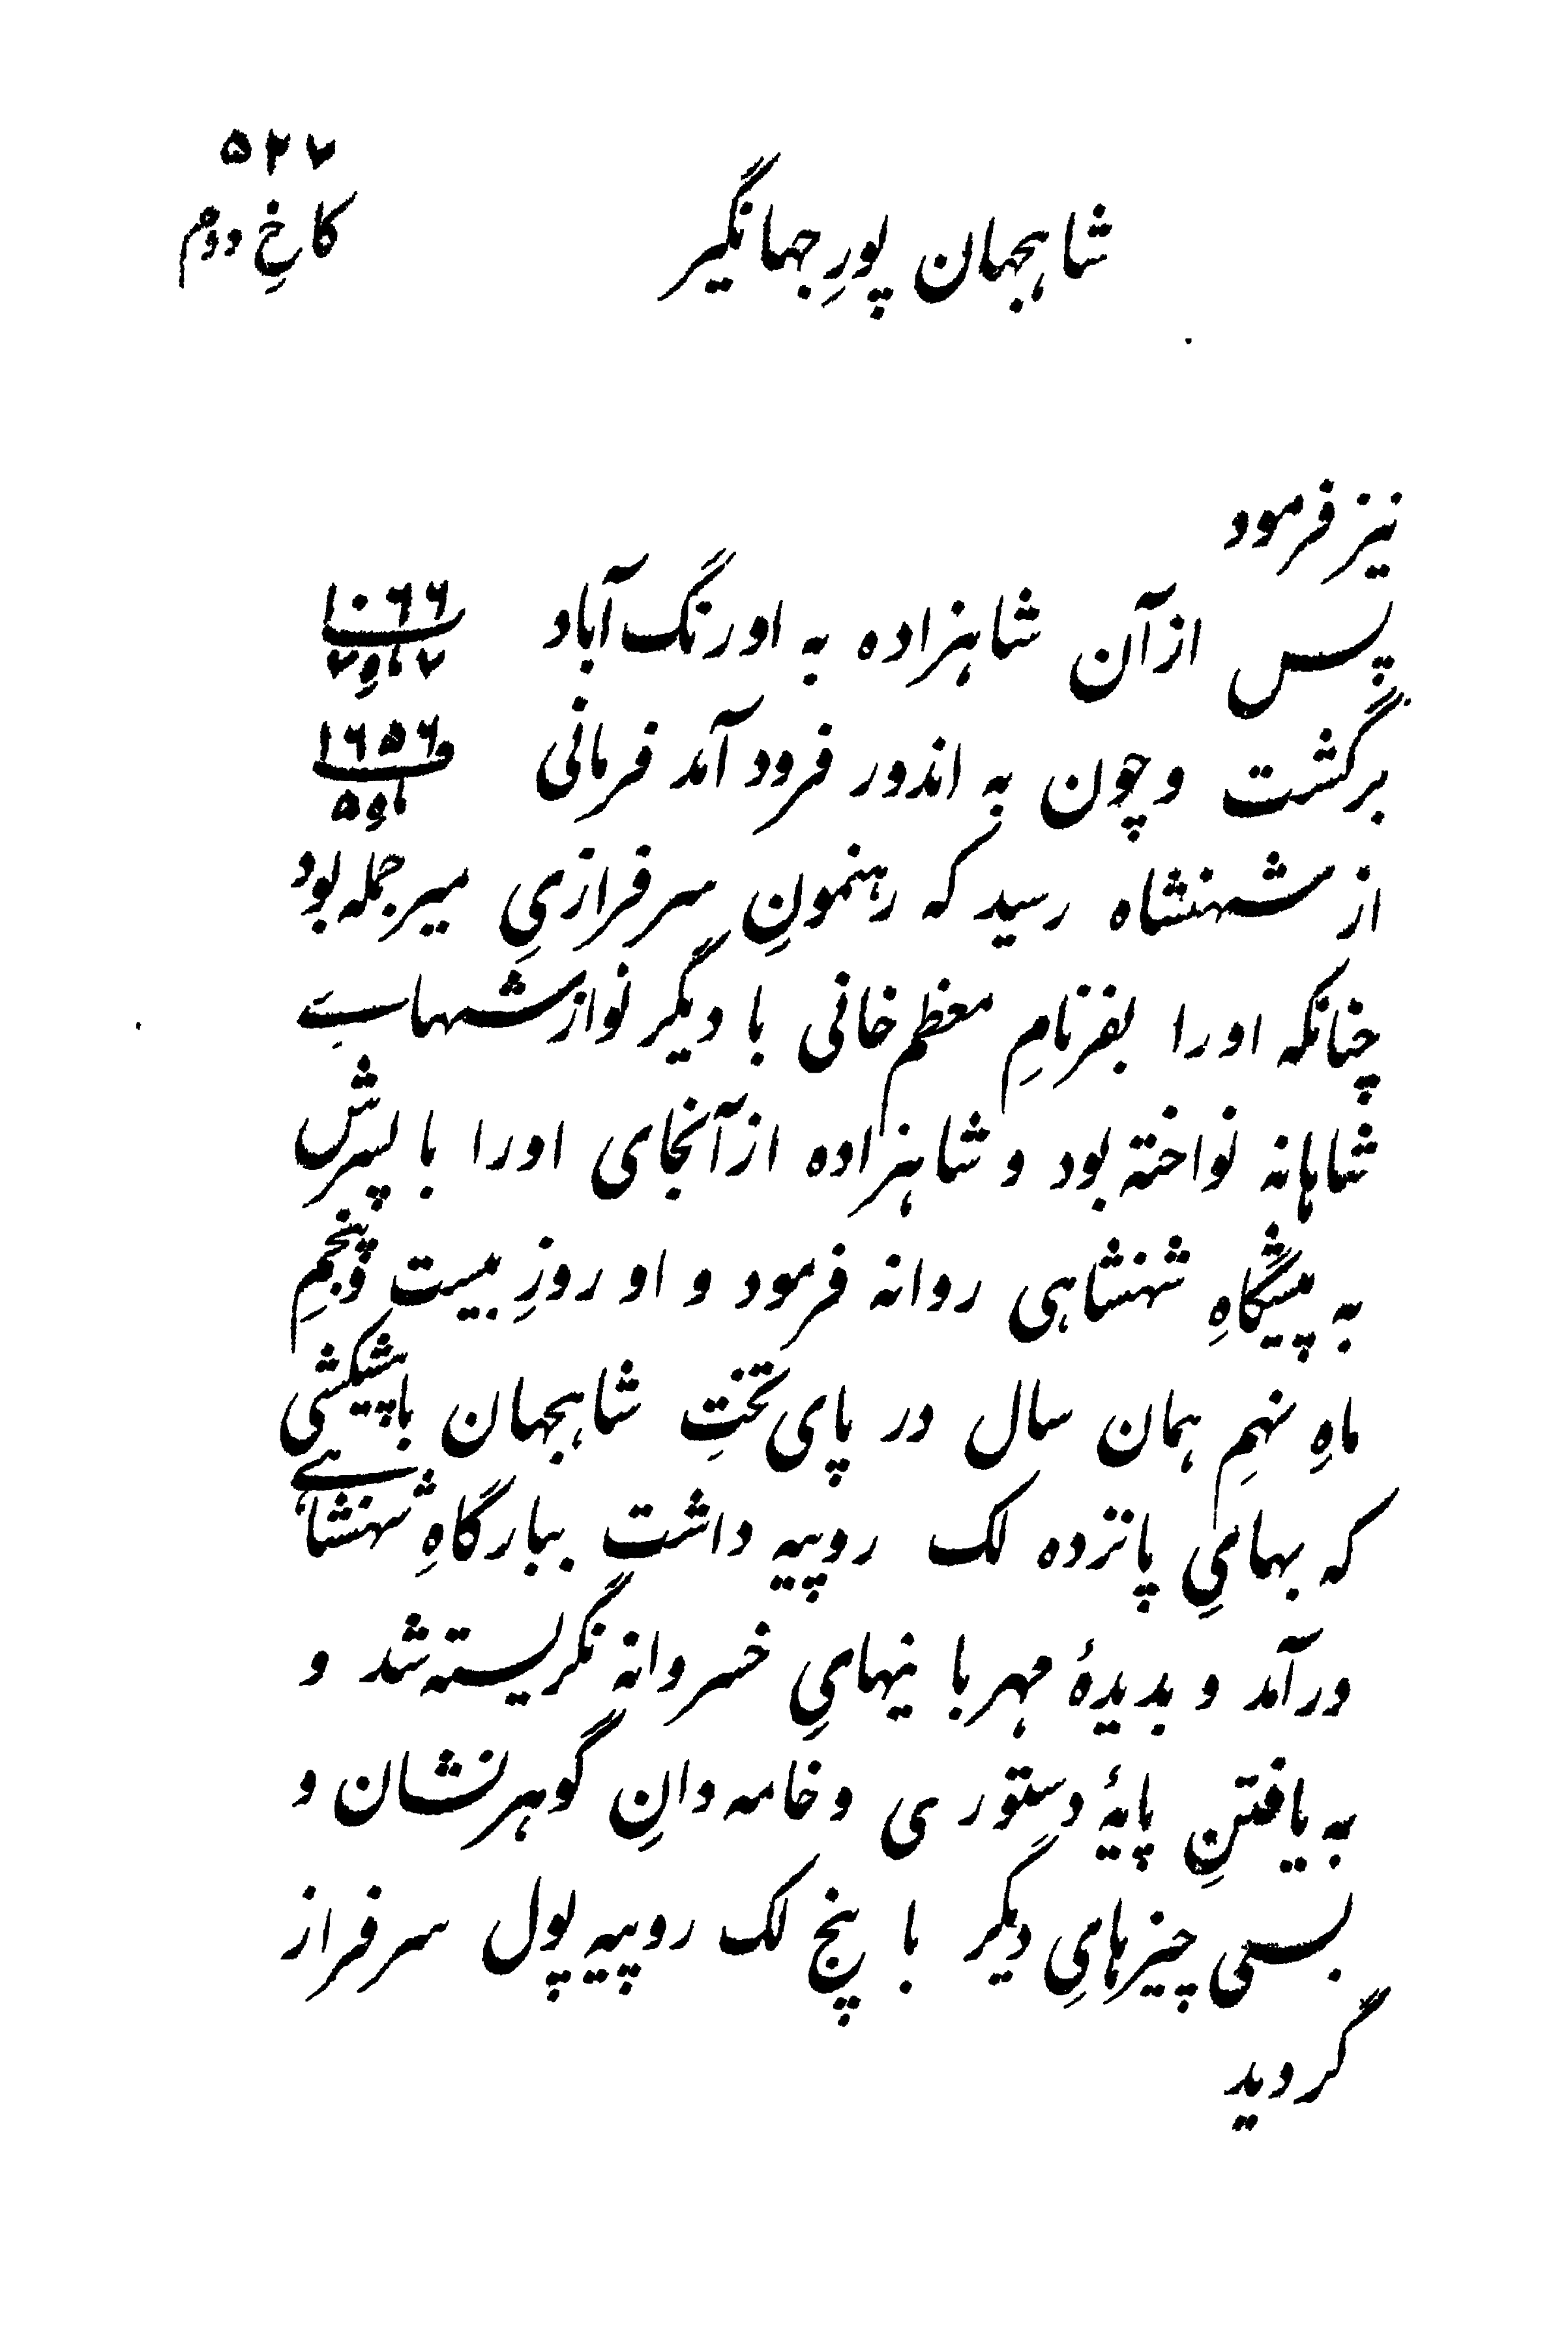 ۵۲۷
شاهجهان پورِ جهانگیر
کاخِ دوم
نیز فرمود
پس از آن شاهزاده به اورنگ آباد
۱۰۶۶
۷ ماه ۷
برگشت و چون به اندور فرود آمد فرمانی
۱۶۵۶
ماه ۵
از شهنشاه رسید که رهنمونِ سرفرازیِ میر جمله بود
چنانکه اورا بفرنامِ معظم خانی با دیگر نوازشهایِ
شاهانه نواخته بود و شاهزاده از آنجای اورا با پسرش
به پیشگاهِ شهنشاهی روانه فرمود و او روزِ بیست و پنجمِ
ماهِ نهمِ همان سال در پای تختِ شاهجهان با پیشکشی
که بهایِ پانزده لک روپیه داشت ببارگاهِ شهنشاهی
در آمد و بدیدهٔ مهربانیهایِ خسروانه نگریسته شد و
به یافتنِ پایهٔ دستوری و خامه دانِ گوهرنشان و
بسی چیزهایِ دیگر با پنج لک روپیه پول سرفراز
گردید